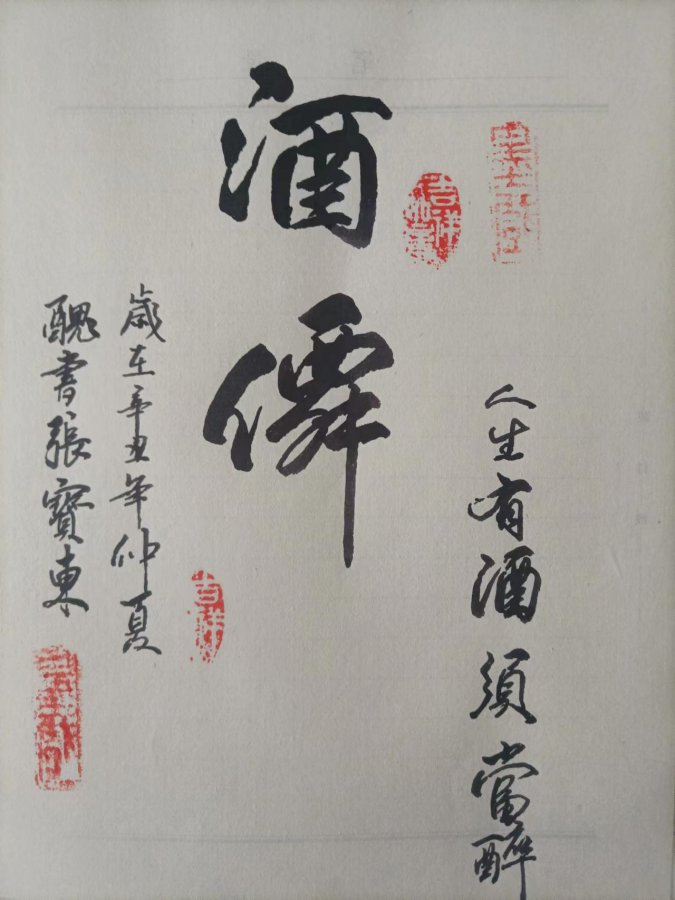 人生有酒須當醉
酒僊
歲在辛丑年仲夏
醜書張寳東
吉祥
吉祥